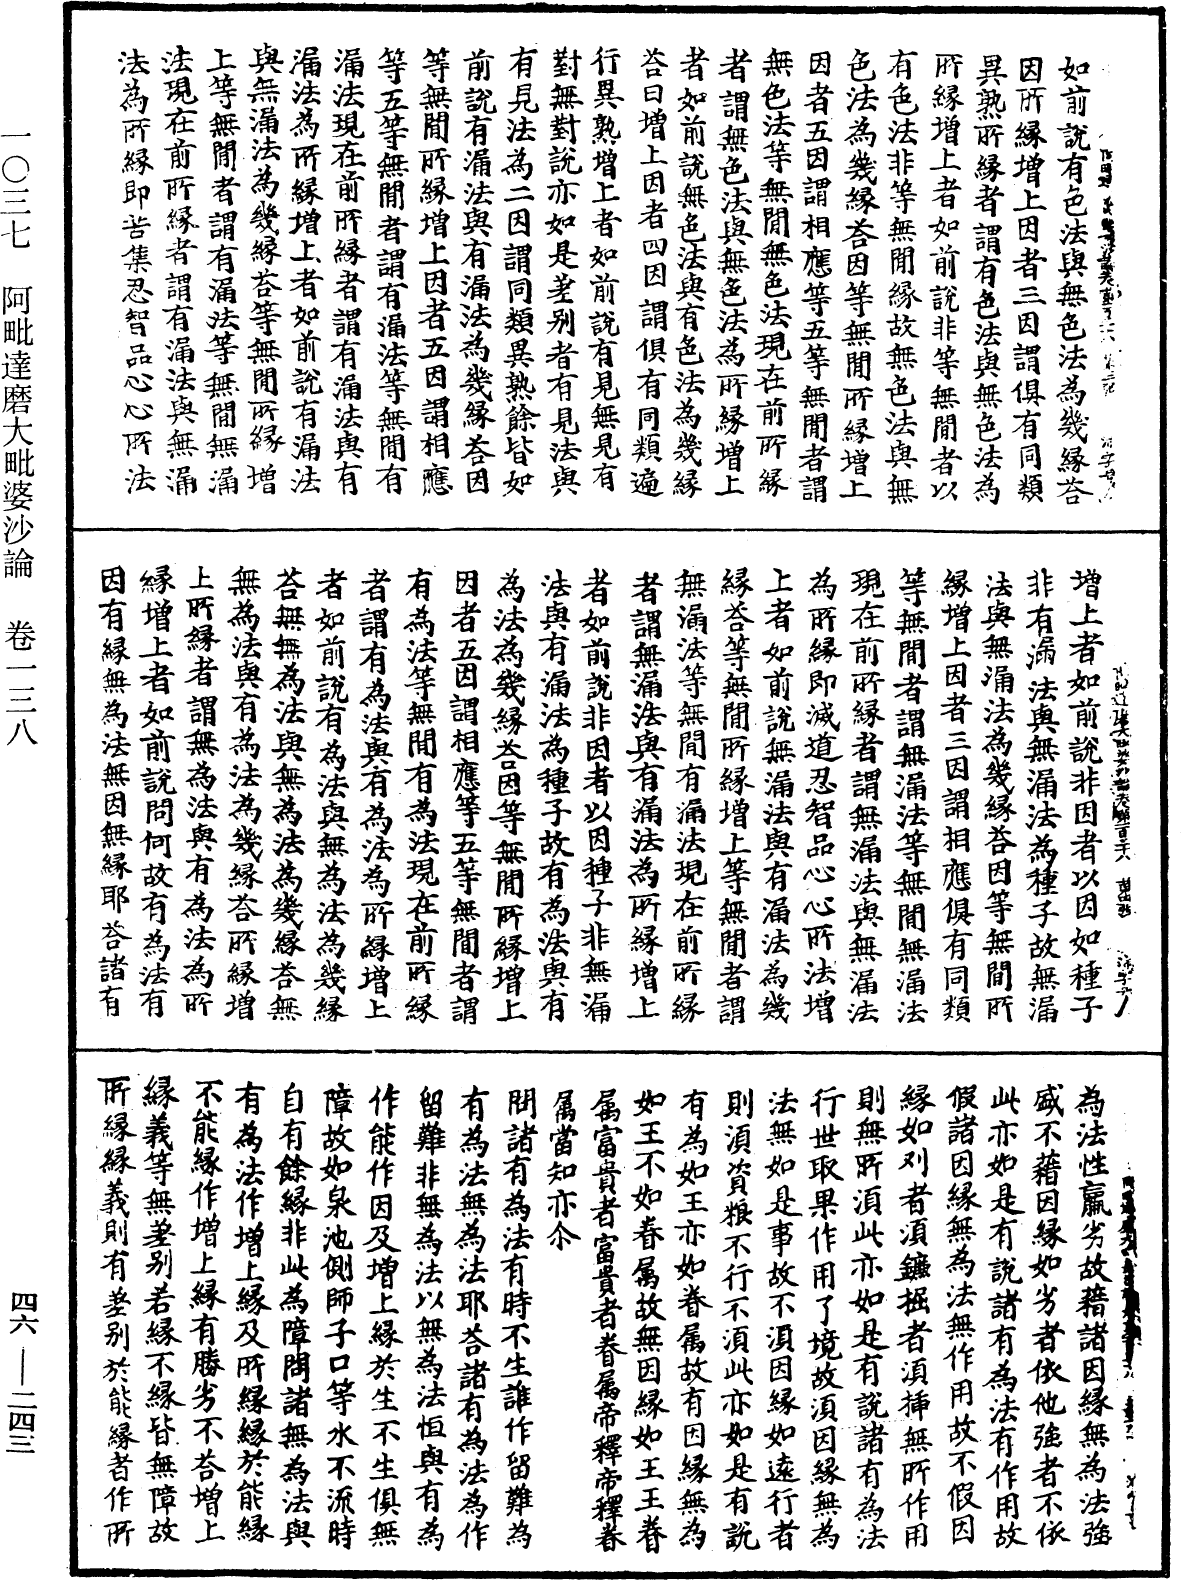 如前說有色法與無色法為幾緣荅
因所緣增上因者三因謂俱有同類
異熟所緣者謂有色法與無色法為
所緣增上者如前說非等無閒者以
有色法非等無閒緣故無色法與無
色法為幾緣荅因等無閒所緣增上
因者五因謂相應等五等無閒者謂
無色法等無閒無色法現在前所緣
者謂無色法與無色法為所緣增上
者如前說無色法與有色法為幾緣
荅曰增上因者四因謂俱有同類遍
行異熟增上者如前說有見無見有
對無對說亦如是差別者有見法與
有見法為二因謂同類異熟餘皆如
前說有漏法與有漏法為幾緣荅因
等無閒所緣增上因者五因謂相應
等五等無閒者謂有漏法等無閒有
漏法現在前所緣者謂有漏法與有
漏法為所緣增上者如前說有漏法
與無漏法為幾緣荅等無閒所緣增
上等無閒者謂有漏法等無閒無漏
法現在前所緣者謂有漏法與無漏
法為所緣即苦集忍智品心心所法
增上者如前說非因者以因如種子
非有漏法與無漏法為種子故無漏
法與無漏法為幾緣荅因等無閒所
緣增上因者三因謂相應俱有同類
等無閒者謂無漏法等無閒無漏法
現在前所緣者謂無漏法與無漏法
為所緣即滅道忍智品心心所法增
上者如前說無漏法與有漏法為幾
緣荅等無閒所緣增上等無閒者謂
無漏法等無閒有漏法現在前所緣
者謂無漏法與有漏法為所緣增上
者如前說非因者以因種子非無漏
法與有漏法為種子故有為法與有
為法為幾緣荅因等無閒所緣增上
因者五因謂相應等五等無閒者謂
有為法等無閒有為法現在前所緣
者謂有為法與有為法為所緣增上
者如前說有為法與無為法為幾緣
荅無無為法與無為法為幾緣荅無
無為法與有為法為幾緣荅所緣增
上所緣者謂無為法與有為法為所
緣增上者如前說問何故有為法有
因有緣無為法無因無緣耶荅諸有
為法性羸劣故藉諸因緣無為法強
盛不藉因緣如劣者依他強者不依
此亦如是有說諸有為法有作用故
假諸因緣無為法無作用故不假因
緣如刈者須鐮掘者須揷無所作用
則無所須此亦如是有說諸有為法
行世取果作用了境故須因緣無為
法無如是事故不須因緣如遠行者
則須資糧不行不須此亦如是有說
有為如王亦如眷属故有因緣無為
如王不如眷属故無因緣如王王眷
属富貴者富貴者眷属帝釋帝釋眷
属當知亦尒
問諸有為法有時不生誰作留難為
有為法無為法耶荅諸有為法為作
留難非無為法以無為法恒與有為
作能作因及增上緣於生不生俱無
障故如泉池側師子口等水不流時
自有餘緣非此為障問諸無為法與
有為法作增上緣及所緣緣於能緣
不能緣作增上緣有勝劣不荅增上
緣義等無差別若緣不緣皆無障故
所緣緣義則有差別於能緣者作所
一〇三七 阿毗達磨大毗婆沙論 卷一三八
四六——二四三